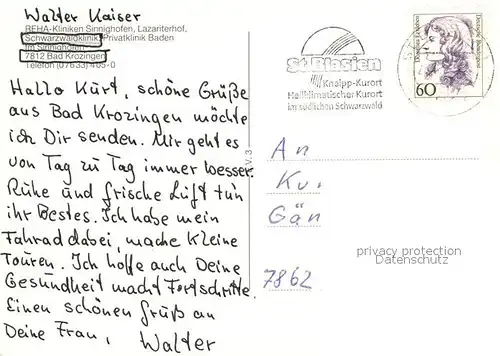 Walter Kaiser
REHA-Kliniken Sinnighofen, Lazariterhof,
Schwarzwaldklinik, Privatklinik Baden
Im Sinnighofen
7812 Bad Krozingen
Telefon (07633) 405-0
Hallo Kurt, schöne Grüße
aus Bad Krozingen möchte
ich Dir senden. Mir geht es
von Tag zu Tag immer besser.
Ruhe und frische Luft tun
ihr Bestes. Ich habe mein
Fahrad dabei, mache kleine
Touren. Ich hoffe auch Deine
Gesundheit macht Fortschritte.
Einen schönen Gruß an
Deine Frau, Walter
St. Blasien
Kneipp-Kurort
Heilklimatischer Kurort
im südlichen Schwarzwald
60
Deutsche Bundespost
An
Ku.
Gän
7862
privacy protection
Datenschutz